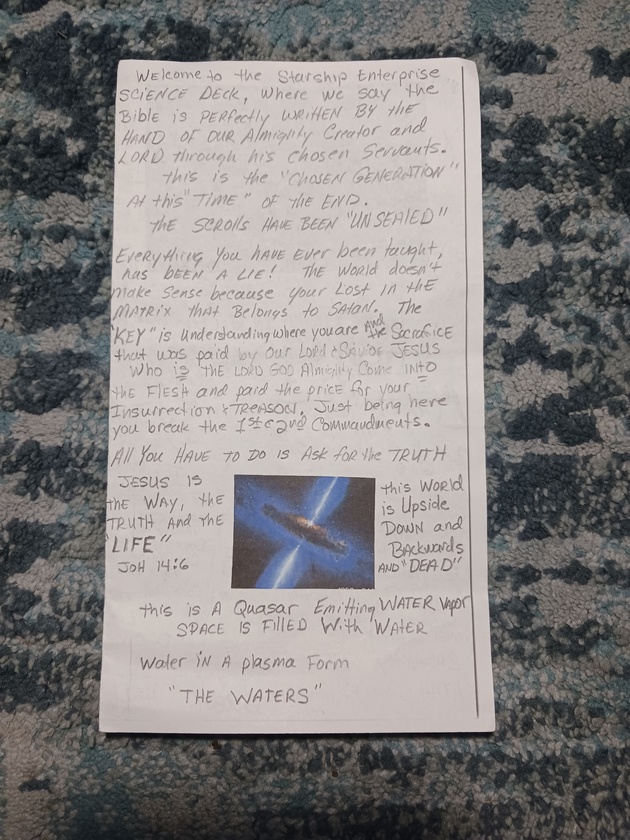 Welcome to the Starship Enterprise
SCIENCE DECK, Where we say the
Bible is PERFECTLY WRITTEN BY the
HAND OF OUR Almighty Creator and
LORD through his chosen Servants.
this is the "CHOSEN GENERATION"
At this "TIME" OF the END.
the SCROLLS HAVE BEEN "UNSEALED"
Everything You HAVE Ever been taught,
has BEEN A LIE! THE WORLD doesn't
make Sense because your Lost IN the
MATRIX THAT Belongs to SATAN. The
"KEY" is Understanding where you are AND the Sacrafice
that was paid by Our Lord & Savior JESUS
Who is THE LORD GOD Almighty Come INTO
the FLESH and paid the price for your
Insurrection & TREASON. Just being here
you break the 1st & 2nd Commandments.
All You HAVE TO DO is Ask for the TRUTH
JESUS IS
the WAY, the
TRUTH And the
"LIFE"
JOH 14:6
this WORLD
is Upside
DOWN and
Backwards
AND "DEAD"
this is A Quasar Emitting WATER Vapor
SPACE IS FILLED With WATER
Water IN A plasma Form
"THE WATERS"